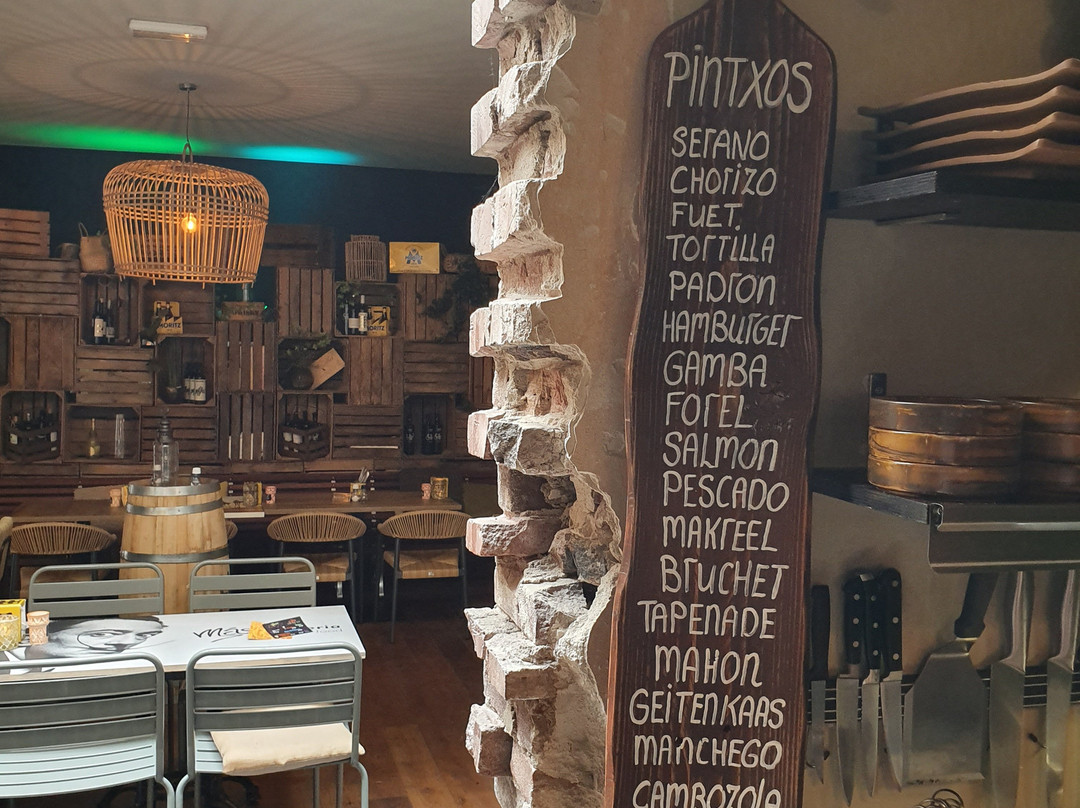 PINTXOS
SERANO
CHORIZO
FUET.
TORTILLA
PADRON
HAMBURGER
GAMBA
FOREL
SALMON
PESCADO
MAKREEL
BRUCHET
TAPENADE
MAHON
GEITENKAAS
MANCHEGO
CAMBOZOLA
MORITZ
MORITZ